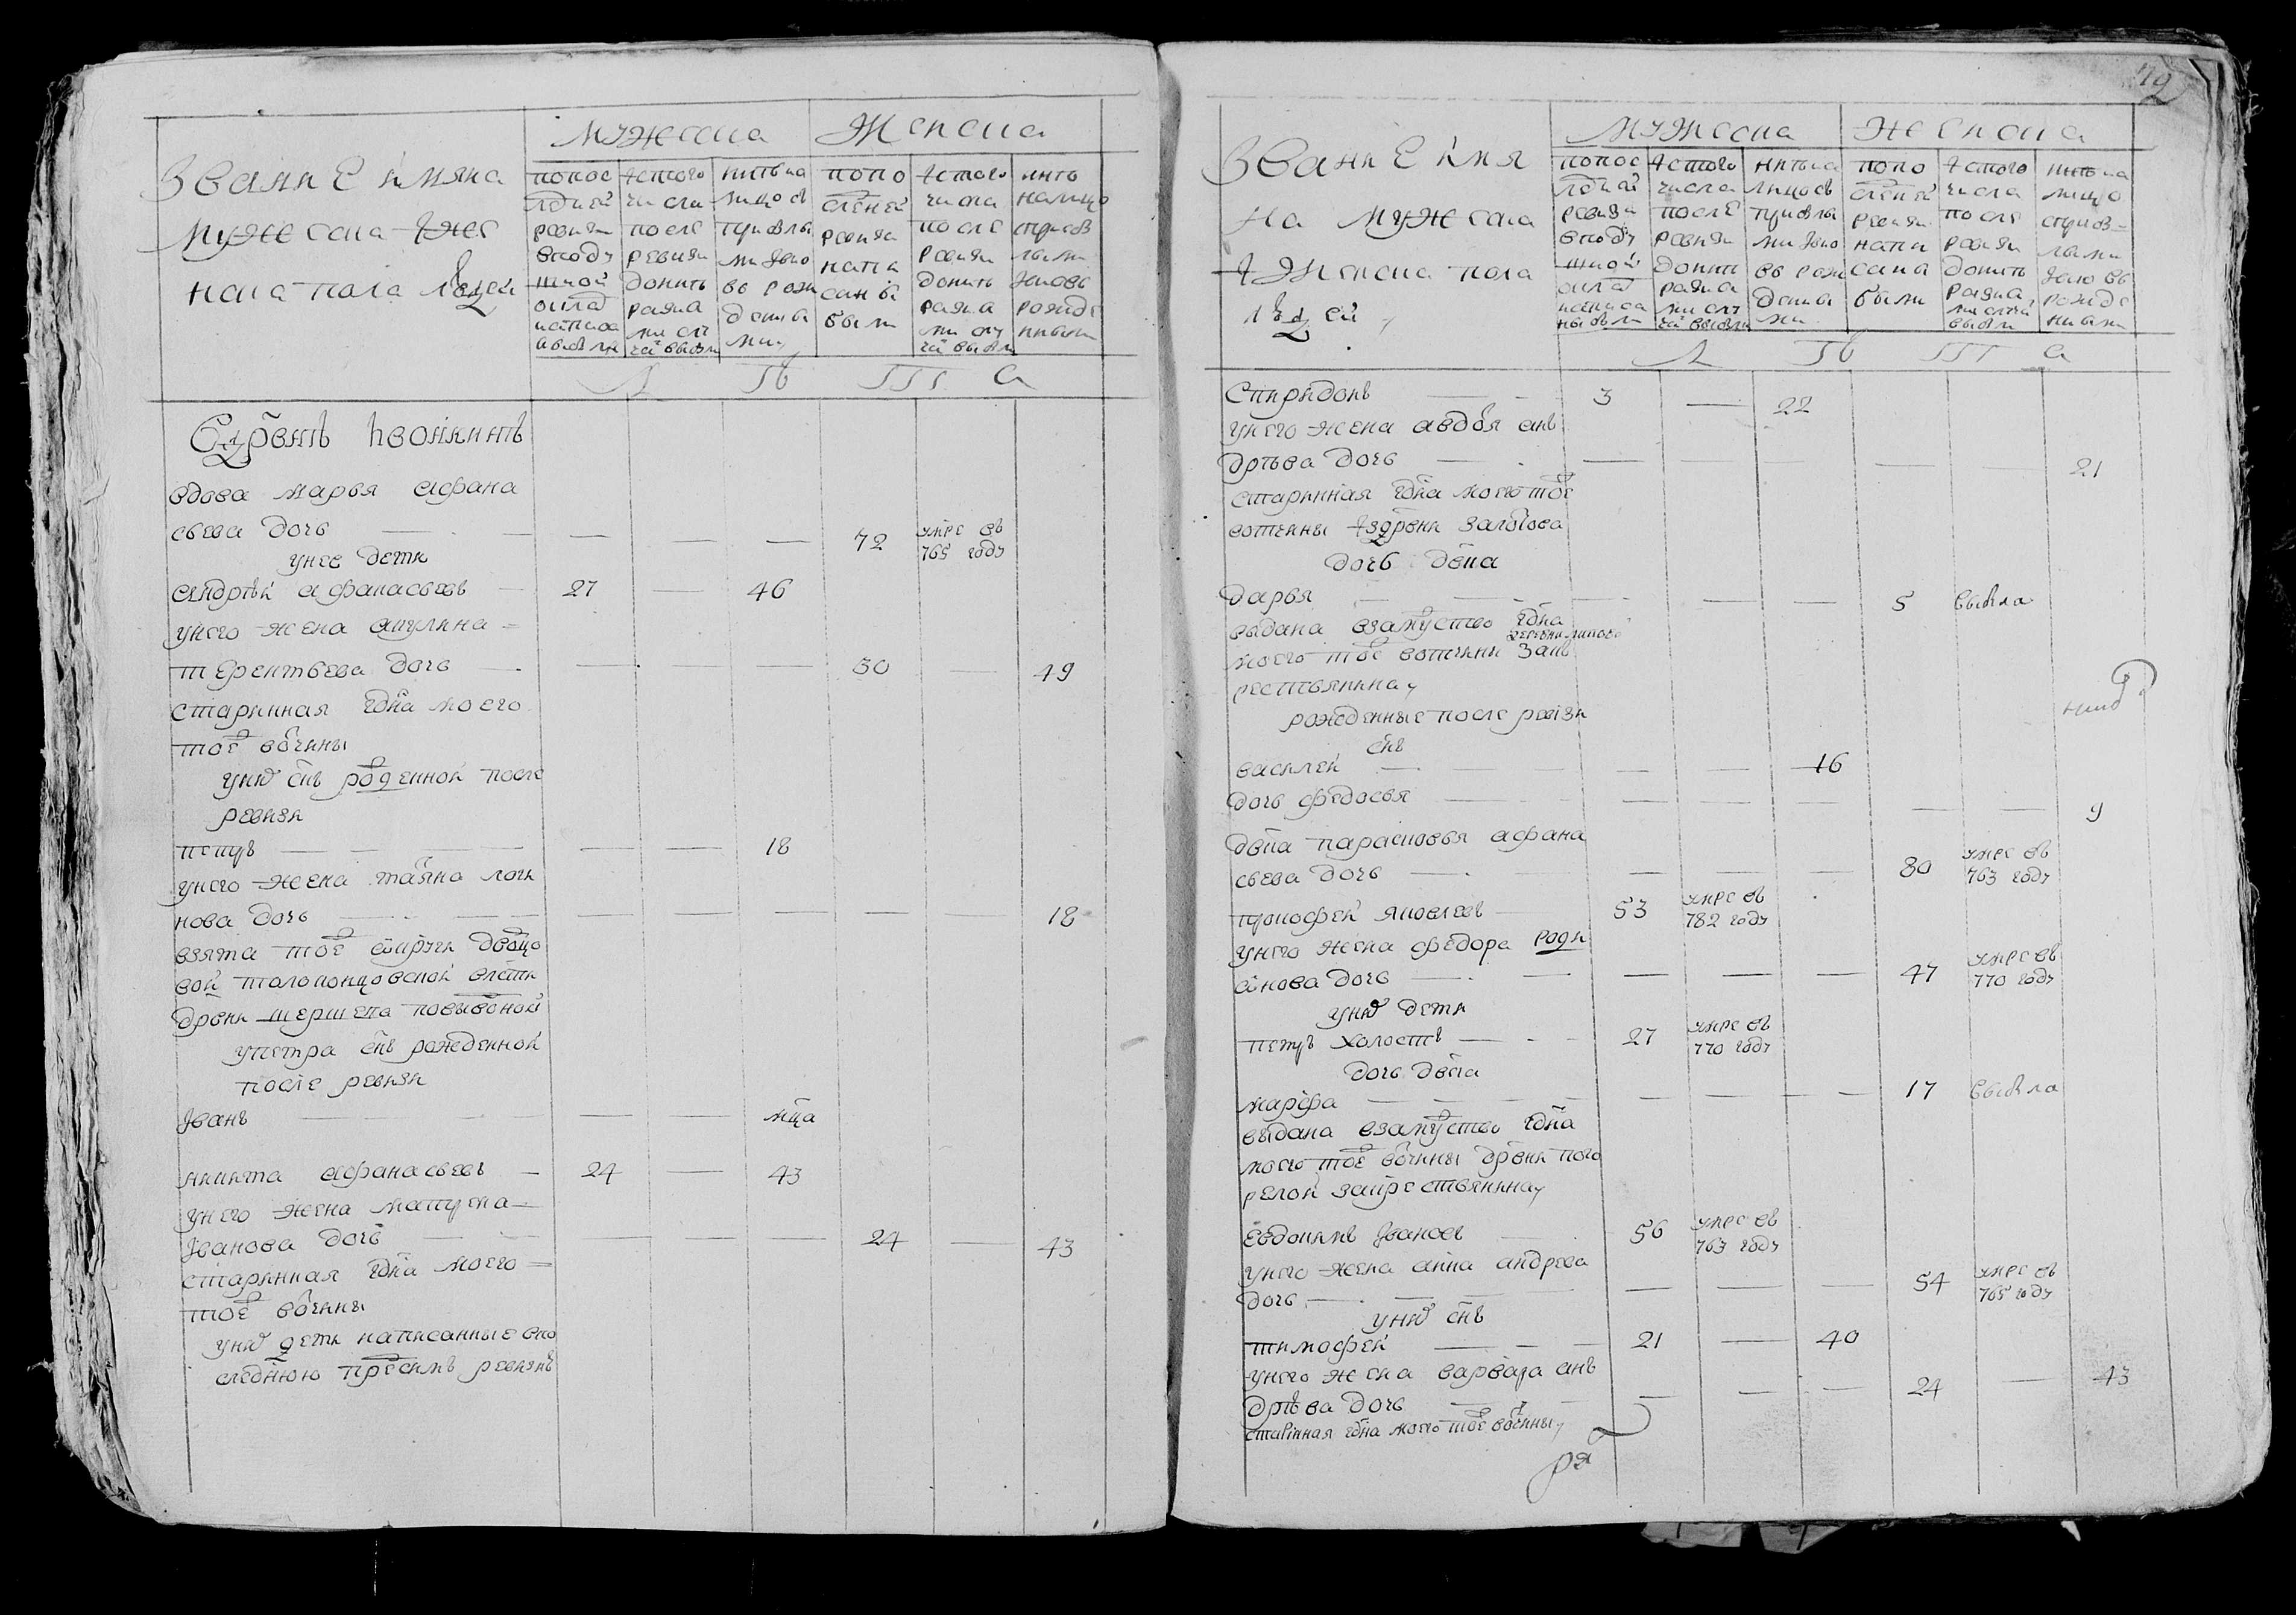 Званїе имяна
мужеска ижес
ка пола людей
мужеска
женска
попос
лѣдней
ревизи
вподу
шной
оклад
написа
ны были
истого
числа
после
ревизи
донынѣ
разна
ми слу
чаи выбыли
ныне на
лицо съ
прибылы
ми и вно
въ рож
денны
ми
попо
следней
ревизи
напи
саны
были
истого
числа
после
ревизи
донынѣ
разна
ми слу
чаи выбыли
ныне
налицо
сприб
лыми
и вновь
рожде
нными
вдова марья афана
сьева дочь — — — — 72 умре въ
765 году
унее дети
андрѣй афанасьевъ — 27 — 46
унего жена акулина =
терентьева дочь — — — — 30 — 49
старинная гдна моего
тое вочины
унихъ снъ рожденной после
ревизи
петръ — — — 18
унего жена татьяна логи
нова дочь — — — — — — 18
взята тое округи дворцо
вой толоконцовской влсти
дрвни шершена повыводной
упетра снъ рожденной
после ревизи
Іванъ — — — мца
никита афанасьевъ — 24 — 43
унего жена матрена =
Іванова дочь — — — — 24 — 43
старинная гдна моего =
тое вочины
унихъ дети написанные впо
следнюю пред симъ ревизию
72
Званїе имя
на мужеска
иженска пола
людей
мужеска
женска
попос
лѣдней
ревизи
вподу
шной
оклад
написа
ны были
истого
числа
после
ревизи
донынѣ
разна
ми слу
чаи выбыли
ныне на
лицо съ
прибылы
ми и вно
въ рож
денны
ми
попо
следней
ревизи
напи
саны
были
истого
числа
после
ревизи
донынѣ
разна
ми случаи
выбыли
ныне на
лицо
сприб
лыми
и вновь
рожде
нными
Спиридонъ — 3 — 22
унего жена авдотья ан
дрѣева дочь — — — — — — 21
старинная гдна моего тое
вотчины издрвни
дочь двка
дарья — — — — 5 выбыла
выдана взамуство гдна
моего тое вотчины
рестьянина
рожденные после ревизи
снъ
василей — — — 16
дочь федосья — — — — — 9
двка парасковья афана
сьева дочь — — — — 80 умре въ
763 году
прокофей яковлевъ — 53 умре въ
782 году
унего жена федора роди
онова дочь — — — — 47 умре въ
770 году
унихъ дети
петръ холостъ — 27 умре въ
770 году
дочь двка
марфа — — — — 17 выбыла
выдана взамуство гдна
моего тое вочины дрвни пого
релой закрестьянина
Евдокимъ Івановъ — 56 умре въ
763 году
унего жена анна андреева
дочь — — — — 54 умре въ
765 году
унихъ снъ
тимофей — 21 — 40
унего жена варвара ан
дрѣева дочь — — — — 24 — 43
старинная гдна моего тое вочины